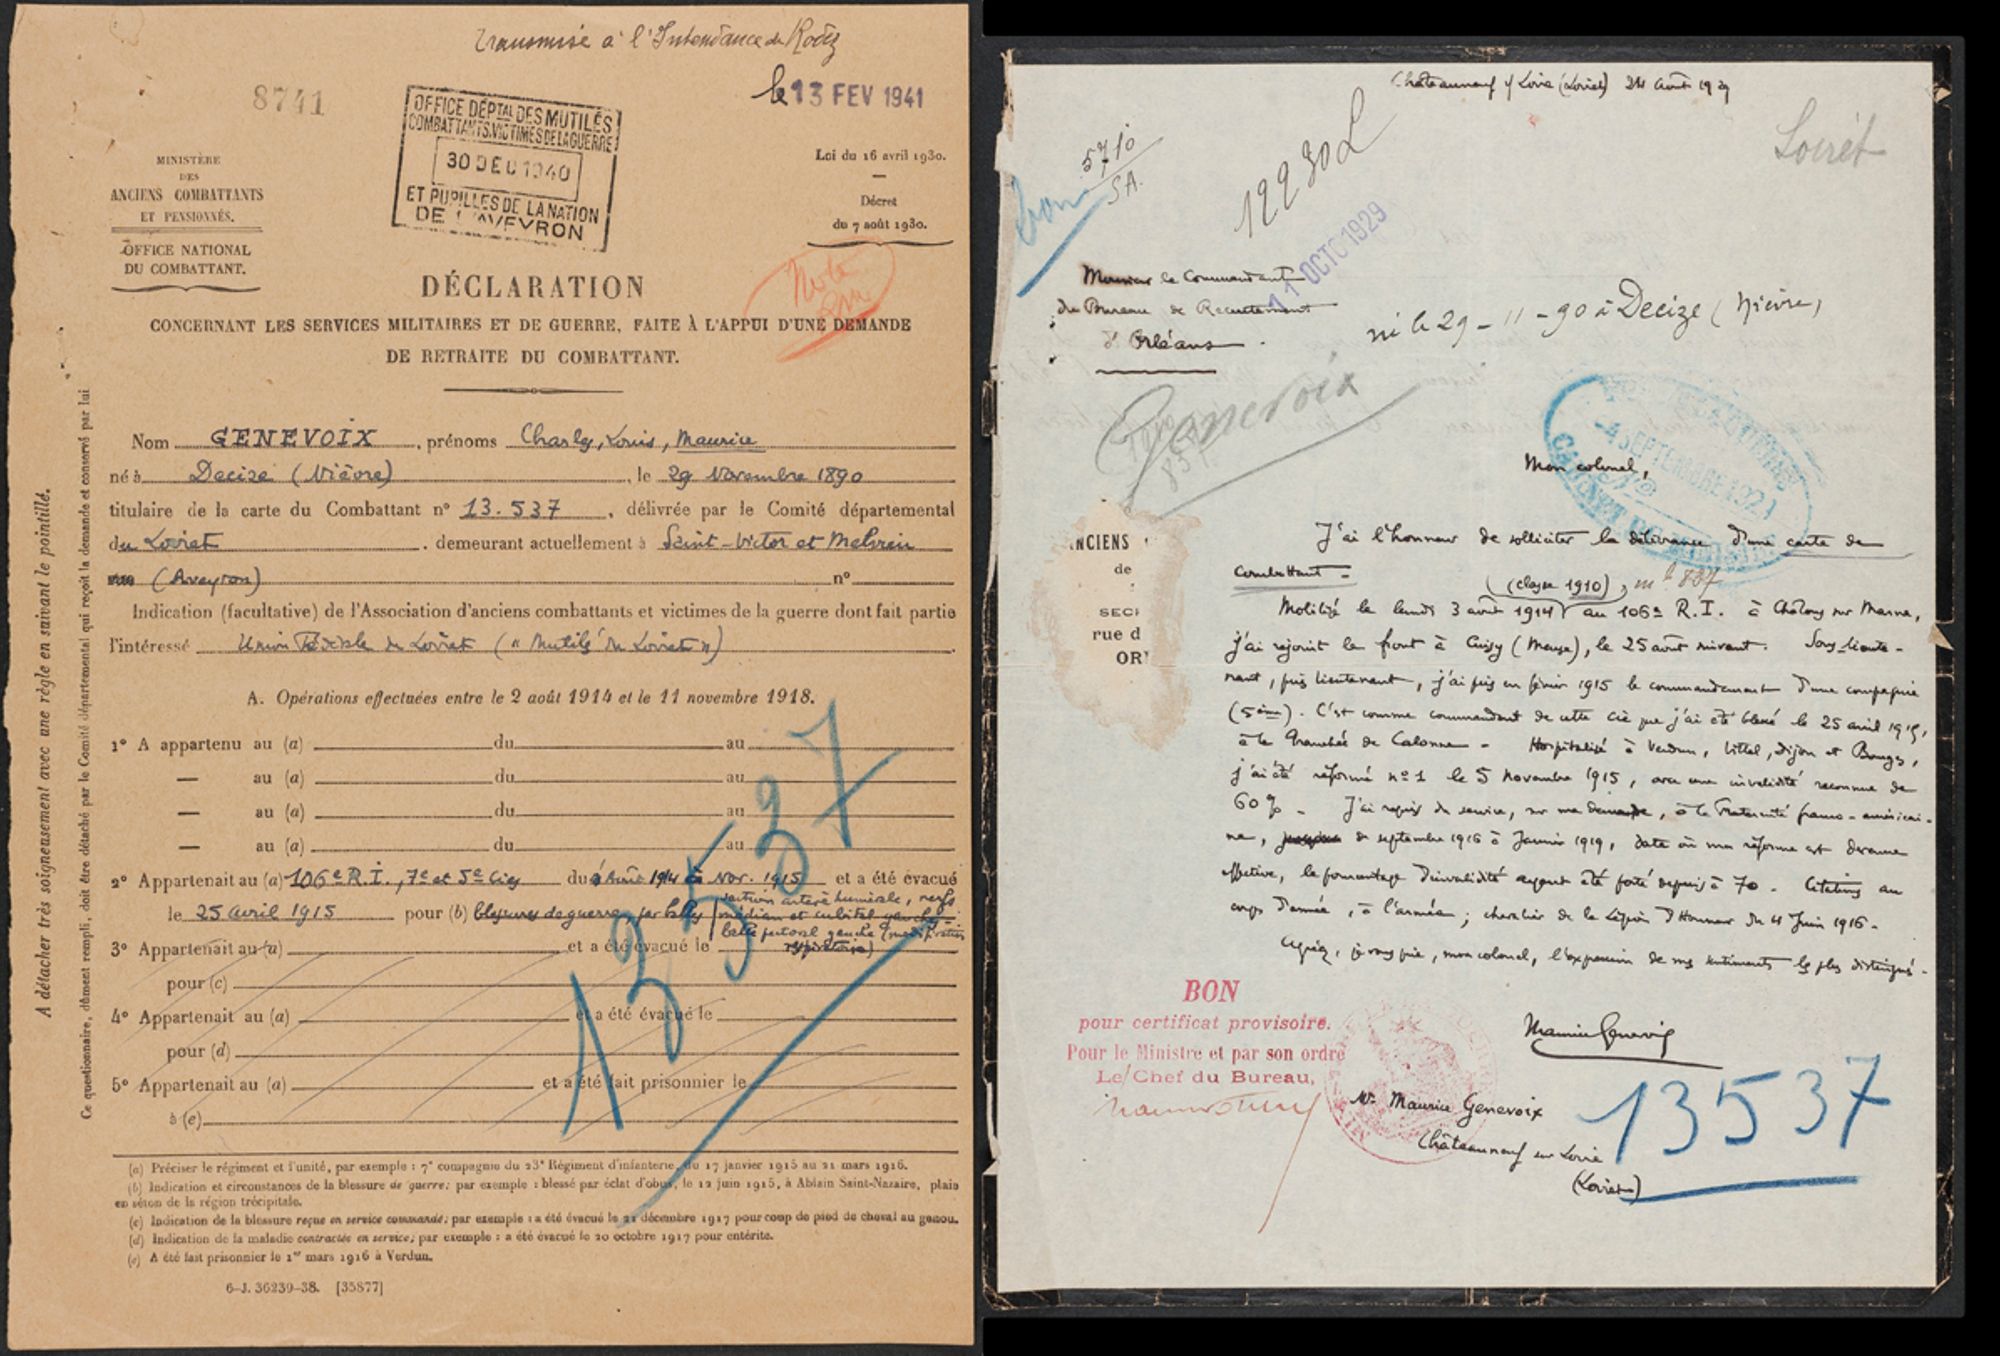 Transmise à l'Intendance de Rodez
le 13 FEV 1941
8741
OFFICE DÉPTAL DES MUTILÉS
COMBATTANTS, VICTIMES DE LA GUERRE
30 DEC 1940
ET PUPILLES DE LA NATION
DE L'AVEYRON
MINISTÈRE
DES
ANCIENS COMBATTANTS
ET PENSIONNÉS.
OFFICE NATIONAL
DU COMBATTANT.
Loi du 16 avril 1930.
Décret
du 7 août 1930.
Note
DÉCLARATION
CONCERNANT LES SERVICES MILITAIRES ET DE GUERRE, FAITE À L'APPUI D'UNE DEMANDE
DE RETRAITE DU COMBATTANT.
A détacher très soigneusement avec une règle en suivant le pointillé.
Ce questionnaire, dûment rempli, doit être détaché par le Comité départemental qui reçoit la demande et conservé par lui
Nom GENEVOIX, prénoms Charles, Louis, Maurice
né à Decize (Nièvre), le 29 Novembre 1890
titulaire de la carte du Combattant n° 13.537, délivrée par le Comité départemental
du Loiret, demeurant actuellement à Saint-Victor et Melvieu
(Aveyron) n°
Indication (facultative) de l'Association d'anciens combattants et victimes de la guerre dont fait partie
l'intéressé Union Fédérale du Loiret ("Mutilé du Loiret")
A. Opérations effectuées entre le 2 août 1914 et le 11 novembre 1918.
1° A appartenu au (a) du au
— au (a) du au
— au (a) du au
— au (a) du au
2° Appartenait au (a) 106e R.I., 7e et 5e Cies du Août 1914 à Nov. 1915 et a été évacué
le 25 avril 1915 pour (b) blessures de guerre par balles section artère humérale, nerfs
médian et cubital gauches
balle pectoral gauche
respiratoire)
3° Appartenait au (a) et a été évacué le
pour (c)
4° Appartenait au (a) et a été évacué le
pour (d)
5° Appartenait au (a) et a été fait prisonnier le
à (e)
13537
(a) Préciser le régiment et l'unité, par exemple : 7e compagnie du 23e Régiment d'infanterie, du 17 janvier 1915 au 21 mars 1916.
(b) Indication et circonstances de la blessure de guerre; par exemple : blessé par éclat d'obus, le 12 juin 1915, à Ablain Saint-Nazaire, plaie
en séton de la région trécipitale.
(c) Indication de la blessure reçue en service commandé; par exemple : a été évacué le 21 décembre 1917 pour coup de pied de cheval au genou.
(d) Indication de la maladie contractée en service; par exemple : a été évacué le 20 octobre 1917 pour entérite.
(e) A été fait prisonnier le 1er mars 1916 à Verdun.
6-J. 36239-38. [35877]
Châteauneuf s/ Loire (Loiret) 24 août 1929
Loiret
5710
SA.
12230L
11 OCTO 1929
Monsieur le Commandant
du Bureau de Recrutement
d'Orléans.
né le 29-11-90 à Decize (Nièvre)
Genevoix
1910
837
SEPTEMBRE
Mon colonel,
J'ai l'honneur de solliciter la délivrance d'une carte de
combattant -
(classe 1910), m le 837
Mobilisé le lundi 3 août 1914 au 106e R.I. à Châlons sur Marne,
j'ai rejoint le front à Cuisy (Meuse), le 25 août suivant. Sous-lieute-
nant, puis lieutenant, j'ai pris en février 1915 le commandement d'une compagnie
(5ème). C'est comme commandant de cette Cie que j'ai été blessé le 25 avril 1915,
à la Tranchée de Calonne - Hospitalisé à Verdun, Vittel, Dijon et Bourges,
j'ai été réformé n° 1 le 5 novembre 1915, avec une invalidité reconnue de
60 % - J'ai repris du service, sur ma demande, à la Fraternité franco-américai-
ne, de septembre 1916 à Janvier 1919, date où ma réforme est devenue
effective, le pourcentage d'invalidité ayant été porté depuis à 70 - Citations au
corps d'armée, à l'armée; chevalier de la Légion d'Honneur du 4 Juin 1916 -
Agréez, je vous prie, mon colonel, l'expression de mes sentiments les plus distingués -
NCIENS
de
SECT
rue d
OR
Maurice Genevoix
BON
pour certificat provisoire.
Pour le Ministre et par son ordre
Le Chef du Bureau,
Mr Maurice Genevoix
Châteauneuf sur Loire
(Loiret)
13537